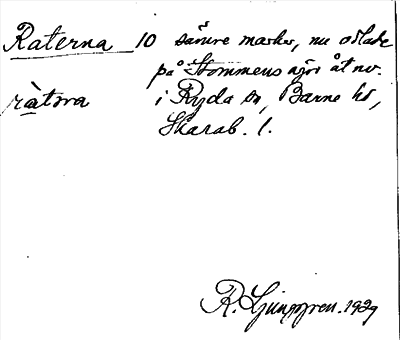 Raterna 10 sämre marker, nu odlade
på Stommens ägor åt nv.
ràtᴏrɴa i Ryda sn, Barne hd,
Skarab. l.
R. Ljunggren. 1929